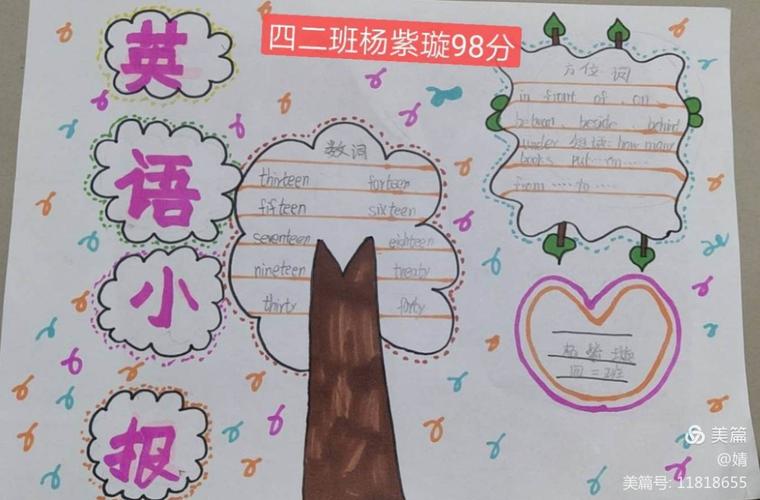 四二班杨紫璇98分
英
语
小
报
数词
thirteen forteen
fifteen sixteen
seventeen eighteen
nineteen twenty
thirty forty
方位词
in front of on
between beside behind
under 短语: how many
books put on ……
from …… to ……
杨紫璇
四二班
美篇
@婧
美篇号: 11818655